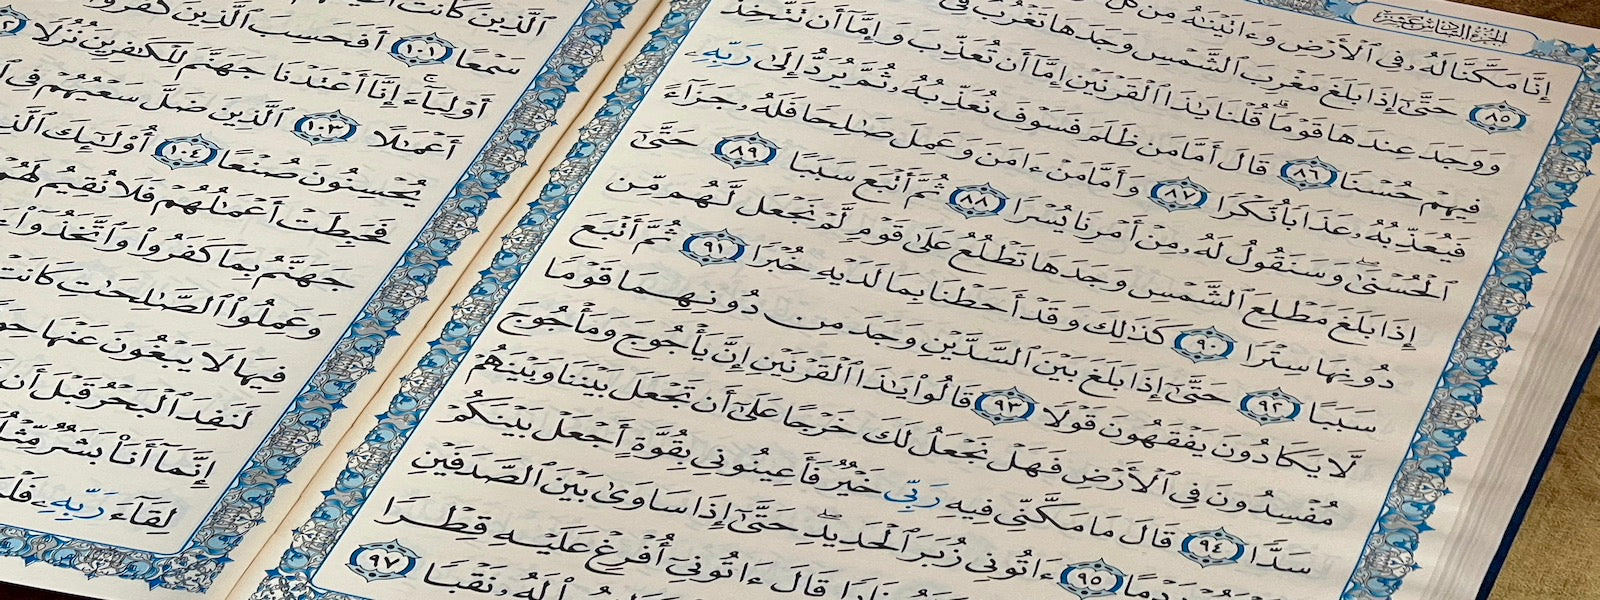 الجزء السادس عشر
إِنَّا مَكَّنَّا لَهُۥ فِي ٱلْأَرْضِ وَءَاتَيْنَٰهُ مِن كُلِّ
٨٥ حَتَّىٰٓ إِذَا بَلَغَ مَغْرِبَ ٱلشَّمْسِ وَجَدَهَا تَغْرُبُ فِي
وَوَجَدَ عِندَهَا قَوْمًا ۗ قُلْنَا يَٰذَا ٱلْقَرْنَيْنِ إِمَّآ أَن تُعَذِّبَ وَإِمَّآ أَن تَتَّخِذَ
فِيهِمْ حُسْنًا ٨٦ قَالَ أَمَّا مَن ظَلَمَ فَسَوْفَ نُعَذِّبُهُۥ ثُمَّ يُرَدُّ إِلَىٰ رَبِّهِۦ
فَيُعَذِّبُهُۥ عَذَابًا نُّكْرًا ٨٧ وَأَمَّا مَنْ ءَامَنَ وَعَمِلَ صَٰلِحًا فَلَهُۥ جَزَآءً
ٱلْحُسْنَىٰ ۖ وَسَنَقُولُ لَهُۥ مِنْ أَمْرِنَا يُسْرًا ٨٨ ثُمَّ أَتْبَعَ سَبَبًا ٨٩ حَتَّىٰٓ
إِذَا بَلَغَ مَطْلِعَ ٱلشَّمْسِ وَجَدَهَا تَطْلُعُ عَلَىٰ قَوْمٍ لَّمْ نَجْعَل لَّهُم مِّن
دُونِهَا سِتْرًا ٩٠ كَذَٰلِكَ وَقَدْ أَحَطْنَا بِمَا لَدَيْهِ خُبْرًا ٩١ ثُمَّ أَتْبَعَ
سَبَبًا ٩٢ حَتَّىٰٓ إِذَا بَلَغَ بَيْنَ ٱلسَّدَّيْنِ وَجَدَ مِن دُونِهِمَا قَوْمًا
لَّا يَكَادُونَ يَفْقَهُونَ قَوْلًا ٩٣ قَالُوا۟ يَٰذَا ٱلْقَرْنَيْنِ إِنَّ يَأْجُوجَ وَمَأْجُوجَ
مُفْسِدُونَ فِي ٱلْأَرْضِ فَهَلْ نَجْعَلُ لَكَ خَرْجًا عَلَىٰٓ أَن تَجْعَلَ بَيْنَنَا وَبَيْنَهُمْ
سَدًّا ٩٤ قَالَ مَا مَكَّنِّي فِيهِ رَبِّي خَيْرٌ فَأَعِينُونِي بِقُوَّةٍ أَجْعَلْ بَيْنَكُمْ
رَدْمًا ٩٥ ءَاتُونِي زُبَرَ ٱلْحَدِيدِ ۖ حَتَّىٰٓ إِذَا سَاوَىٰ بَيْنَ ٱلصَّدَفَيْنِ
نَارًا قَالَ ءَاتُونِيٓ أُفْرِغْ عَلَيْهِ قِطْرًا
لَهُۥ نَقْبًا ٩٧
ٱلَّذِينَ كَانَتْ
سَمْعًا ١٠١ أَفَحَسِبَ ٱلَّذِينَ كَفَرُوٓا۟
أَوْلِيَآءَ ۚ إِنَّآ أَعْتَدْنَا جَهَنَّمَ لِلْكَٰفِرِينَ نُزُلًا
أَعْمَٰلًا ١٠٣ ٱلَّذِينَ ضَلَّ سَعْيُهُمْ فِي
يُحْسِنُونَ صُنْعًا ١٠٤ أُو۟لَٰٓئِكَ ٱلَّذِينَ
فَحَبِطَتْ أَعْمَٰلُهُمْ فَلَا نُقِيمُ لَهُمْ
جَهَنَّمُ بِمَا كَفَرُوا۟ وَٱتَّخَذُوٓا۟
وَعَمِلُوا۟ ٱلصَّٰلِحَٰتِ كَانَتْ
فِيهَا لَا يَبْغُونَ عَنْهَا
لَنَفِدَ ٱلْبَحْرُ قَبْلَ أَن
إِنَّمَآ أَنَا۠ بَشَرٌ مِّثْلُكُمْ
لِقَآءَ رَبِّهِۦ